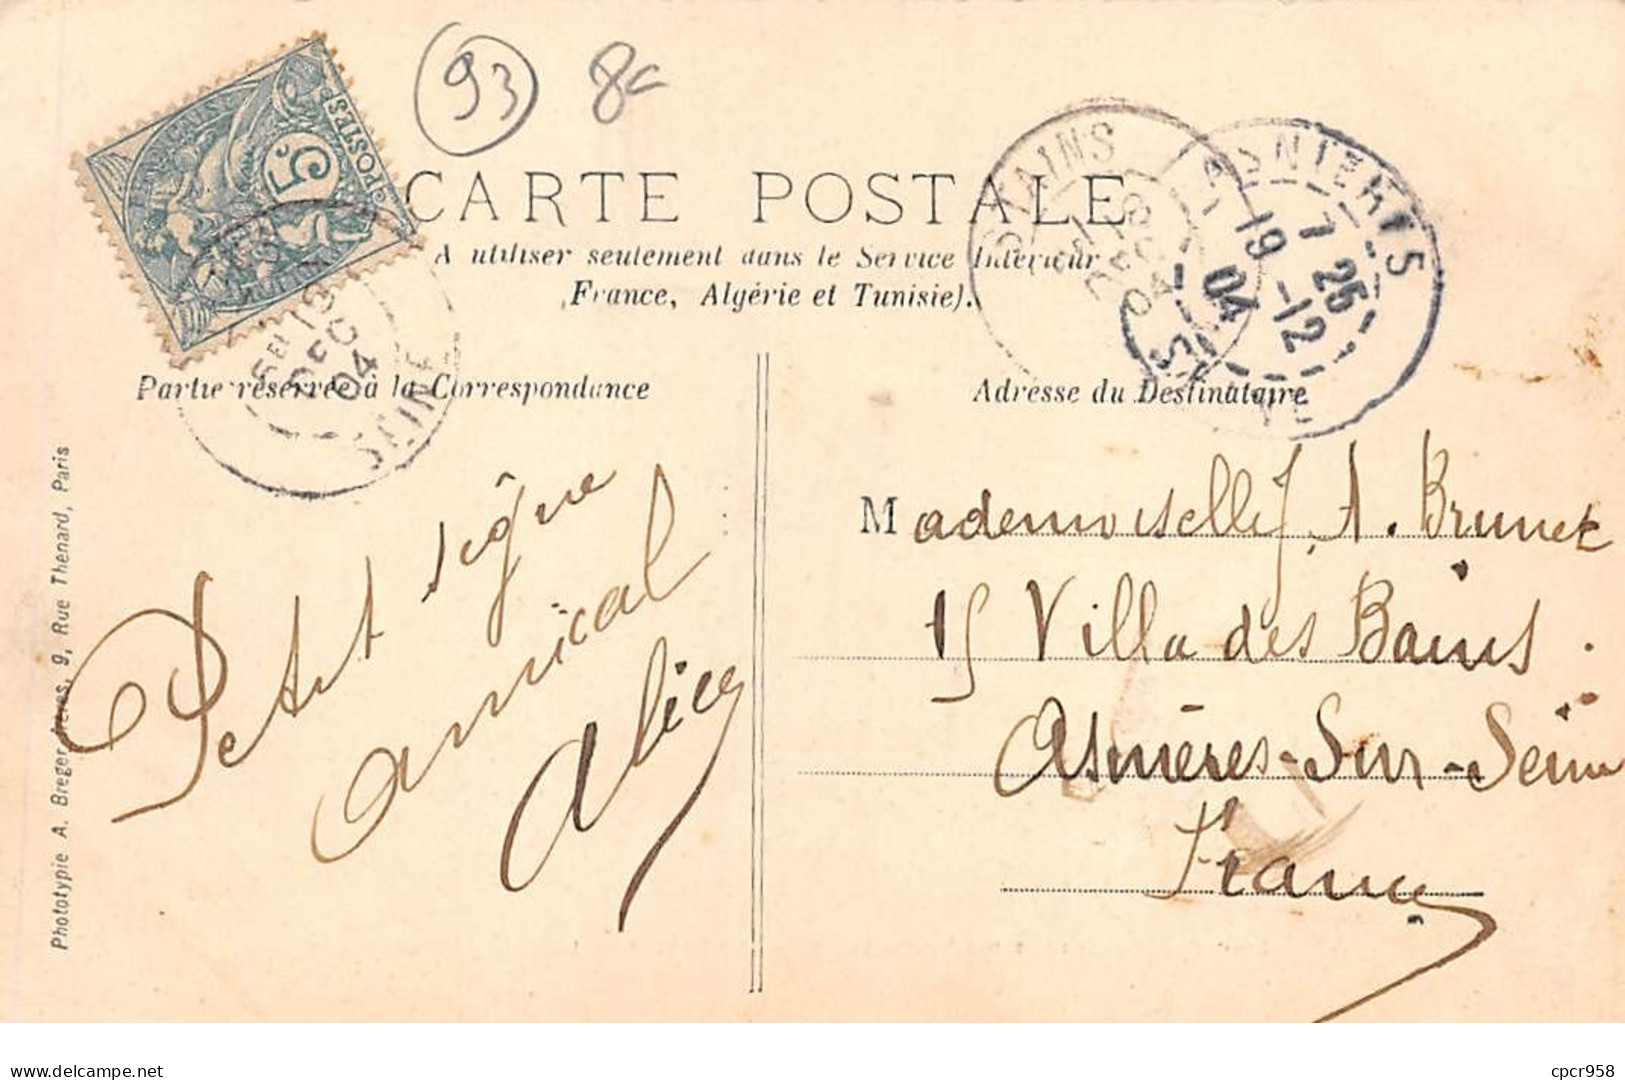 93 8c
RÉPUBLIQUE FRANÇAISE
5c POSTES
CARTE POSTALE
A utiliser seulement dans le Service Intérieur
(France, Algérie et Tunisie).
STAINS
DEC
04
SEINE
ASNIERES
7 25
19 -12
04
Partie réservée à la Correspondance
Adresse du Destinataire
Petit signe
amical
Alice
Mademoiselle J. A. Brunet
15 Villa des Bains.
Asnières-Sur-Seine
France
Phototypie A. Breger frères, 9, Rue Thénard, Paris
www.delcampe.net
cpcr958